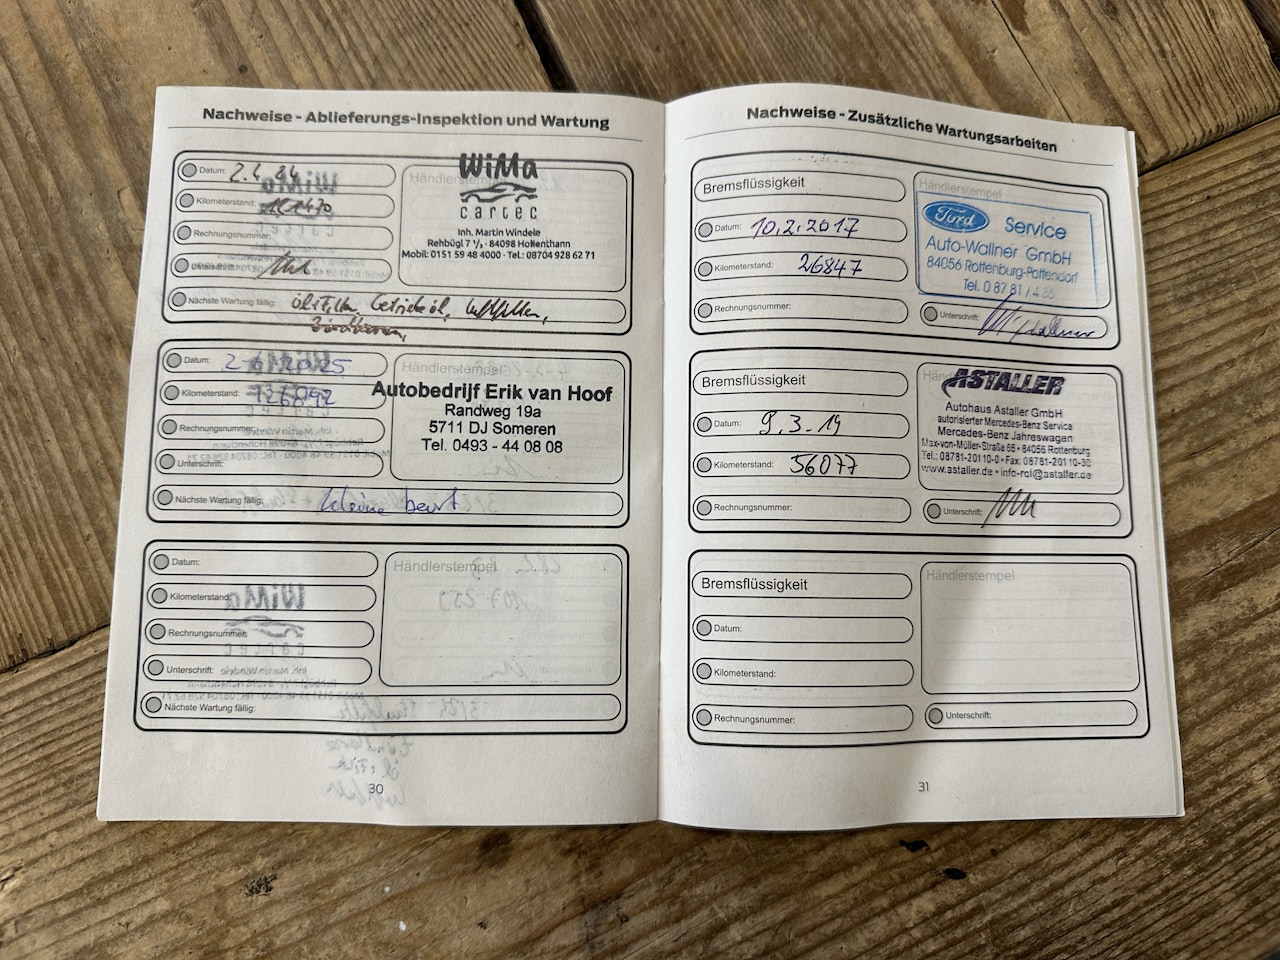 Nachweise - Ablieferungs-Inspektion und Wartung
Datum: 2.4.24
Kilometerstand:
Rechnungsnummer:
Unterschrift:
Händlerstempel
WiMa
cartec
Inh. Martin Windele
Rehbügl 7 ½ · 84098 Hohenthann
Mobil: 0151 59 48 4000 · Tel.: 08704 928 62 71
Nächste Wartung fällig: Getriebeöl, Luftfilter,
Zündkerzen,
Datum: 2-6-2025
Kilometerstand: 126092
Rechnungsnummer:
Unterschrift:
Händlerstempel
Autobedrijf Erik van Hoof
Randweg 19a
5711 DJ Someren
Tel. 0493 - 44 08 08
Nächste Wartung fällig: kleine beurt
Datum:
Kilometerstand:
Rechnungsnummer:
Unterschrift:
Händlerstempel
Nächste Wartung fällig:
30
Nachweise - Zusätzliche Wartungsarbeiten
Bremsflüssigkeit
Datum: 10.2.2017
Kilometerstand: 26847
Rechnungsnummer:
Händlerstempel
Ford Service
Auto-Wallner GmbH
84056 Rottenburg-Pattendorf
Tel. 0 87 81 / 4
Unterschrift:
Bremsflüssigkeit
Datum: 9.3.19
Kilometerstand: 56077
Rechnungsnummer:
ASTALLER
Autohaus Astaller GmbH
autorisierter Mercedes-Benz Service
Mercedes-Benz Jahreswagen
Max-von-Müller-Straße 66 • 84056 Rottenburg
Tel.: 08781-20110-0 • Fax: 08781-20110-30
www.astaller.de • info-rol@astaller.de
Unterschrift:
Bremsflüssigkeit
Datum:
Kilometerstand:
Rechnungsnummer:
Händlerstempel
Unterschrift:
31